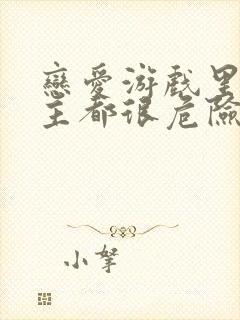 戀愛游戲里
主都很危險
小孥